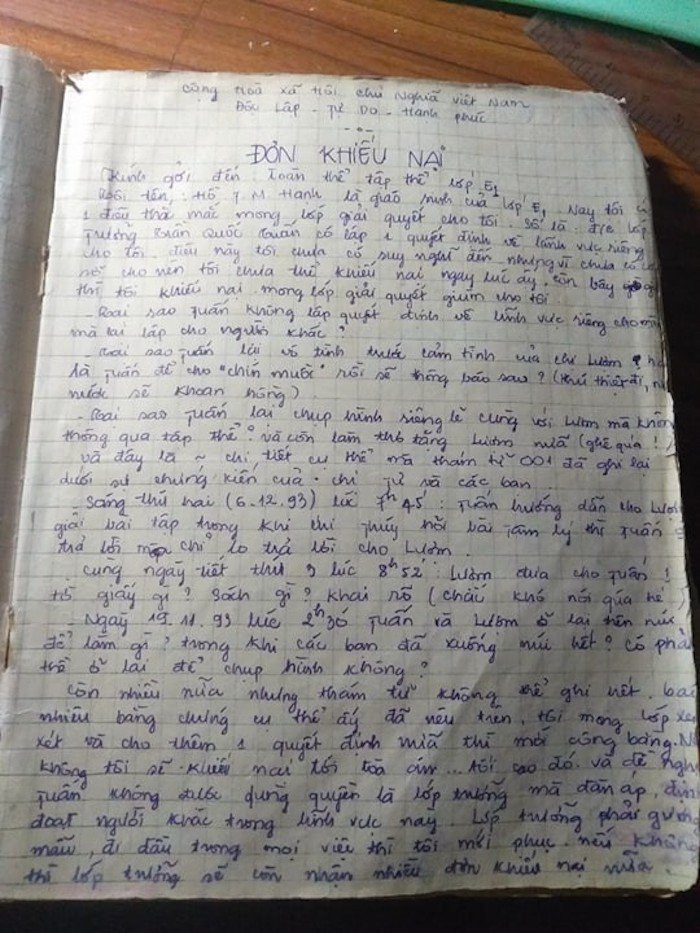 Cộng Hoà xã Hội chủ Nghĩa việt Nam
Độc Lập - Tự Do - Hạnh phúc
ĐƠN KHIẾU NẠI
Kính gởi đến: Toàn thể tập thể lớp E1
Tôi tên: Hồ T.M. Hạnh là giáo sinh của lớp E1. Nay tôi có
1 điều thắc mắc mong lớp giải quyết cho tôi. Số là: đ/c lớp
trưởng Trần Quốc Tuấn có lập 1 quyết định về lãnh vực riêng
cho tôi. điều này tôi chưa có suy nghĩ đến nhưng vì chưa có
nên cho nên tôi chưa thể khiếu nại ngay lúc ấy. còn bây giờ
thì tôi khiếu nại. mong lớp giải quyết giùm cho tôi
- Tại sao tuấn không lập quyết định về lĩnh vực riêng cho
mà lại lập cho người khác?
- Tại sao tuấn lại vô tình trước cảm tình của chị Lượm?
là tuấn để cho "chín muồi" rồi sẽ thông báo sau? (thú thiệt đi,
nước sẽ khoan hồng).
- Tại sao tuấn lại chụp hình riêng lẽ cùng với Lượm mà không
thông qua tập thể? và còn làm thơ tặng Lượm nữa (ghê quá!)
và đây là ~ chi tiết cụ thể mà thám tử 001 đã ghi lại
dưới sự chứng kiến của chị Tư và các bạn.
Sáng thứ hai (6.12.93) lúc 7h45': tuấn hướng dẫn cho Lượm
giải bài tập trong khi chị thúy hỏi bài tâm lý thì tuấn
trả lời mà chỉ lo trả lời cho Lượm.
- Cùng ngày tiết thứ 3 lúc 8h52': Lượm đưa cho tuấn 1
tờ giấy gì? sách gì? khai rõ (chắc khó nói qúa hé)
- Ngày 19.11.93 lúc 2h30 tuấn và Lượm ở lại trên núi
để làm gì? trong khi các bạn đã xuống núi hết? có phải
thề ở lại để chụp hình không?
Còn nhiều nữa nhưng thám tử không thể ghi hết. bao
nhiêu bằng chứng cụ thể ấy đã nêu trên, tôi mong lớp
xét và cho thêm 1 quyết định nữa thì mới công bằng.
không tôi sẽ khiếu nại tới toà án... tối cao đó. và đề nghị
tuấn không được dụng quyền là lớp trưởng mà đàn áp,
đoạt người khác trong lĩnh vực này. Lớp trưởng phải gương
mẫu, đi đầu trong mọi việc thì tôi mới phục. nếu không
thì lớp trưởng sẽ còn nhận nhiều đơn khiếu nại nữa.